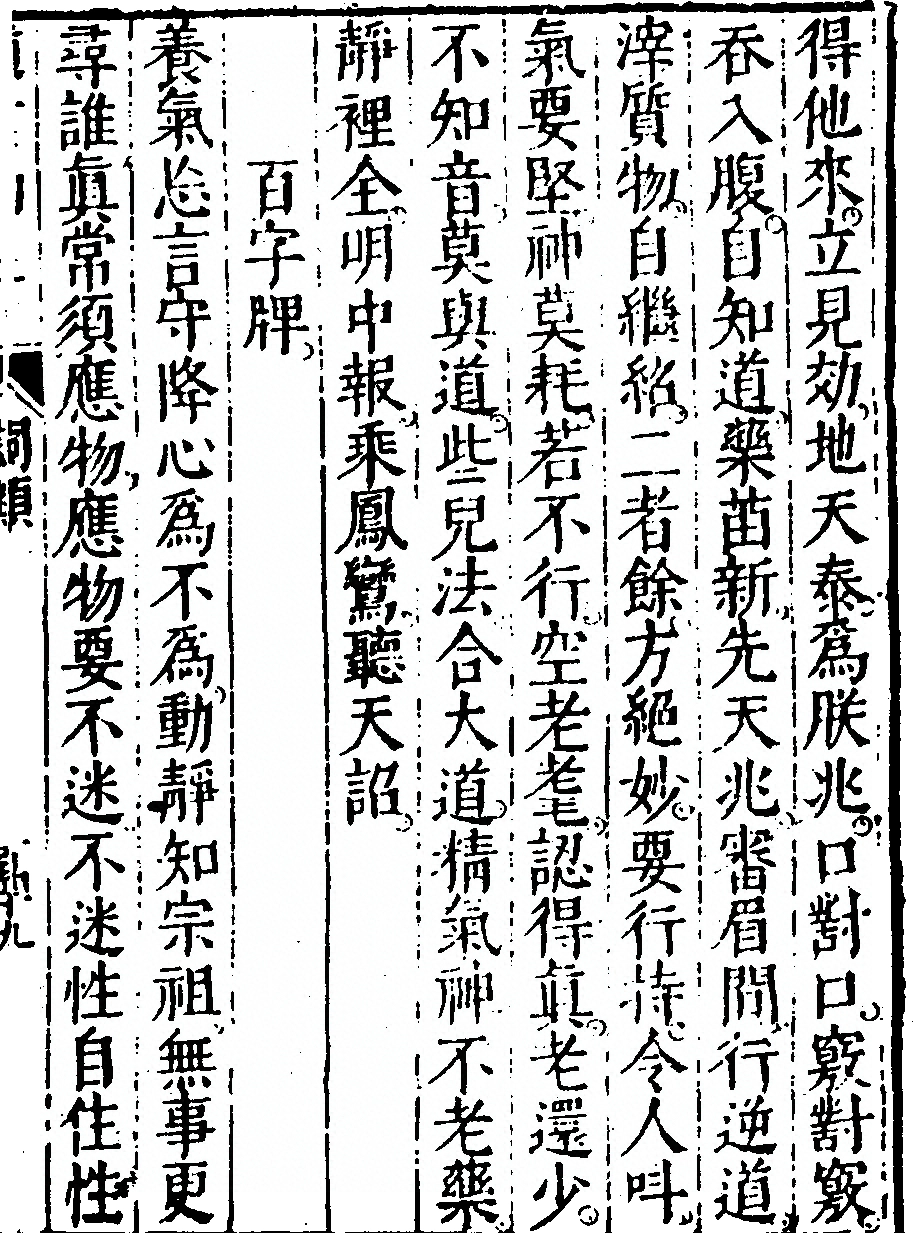 得他來立見効地天泰爲朕兆口對口竅對竅
吞入腹自知道藥苗新先天兆審眉間行逆道
滓質物自繼紹二者餘方絕妙要行持令人叫
氣要堅神莫耗若不行空老耄認得眞老還少
不知音莫與道些兒法合大道精氣神不老藥
靜裡全明中報乘鳳鸞聽天詔
百字牌
養氣忘言守降心爲不爲動靜知宗祖無事更
尋誰眞常須應物應物要不迷不迷性自住性
詞類